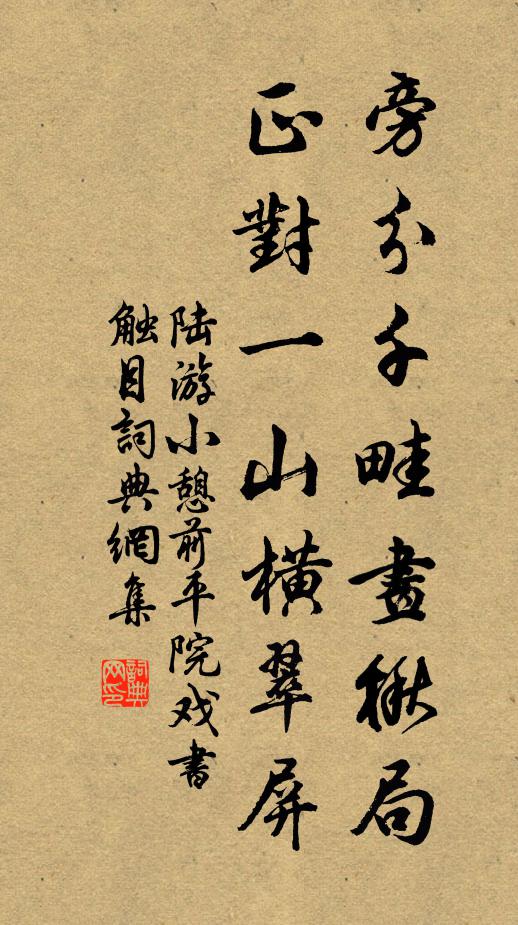 旁分千畦畫楸局
正對一山橫翠屏
陆游小憩前平院戏書
触目詞典網集
詞典网印